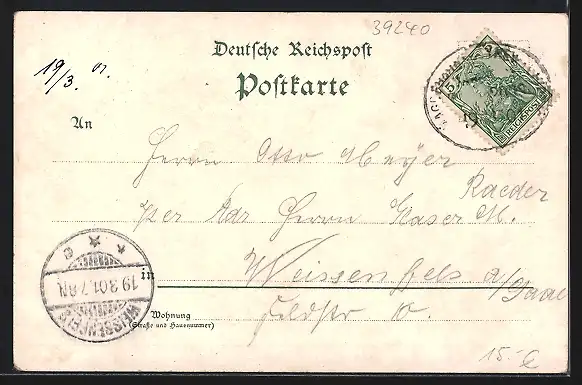 39240
Deutsche Reichspost
Postkarte
19/3. 01.
5
REICHSPOST
19
An
Herrn Otto Meyer
Raeder
per Adr Herrn Glaser M.
in Weissenfels a/Saale
Feldstr 10.
Wohnung
(Straße und Hausnummer)
WEISSENFELS
19.3.01.7
15.-